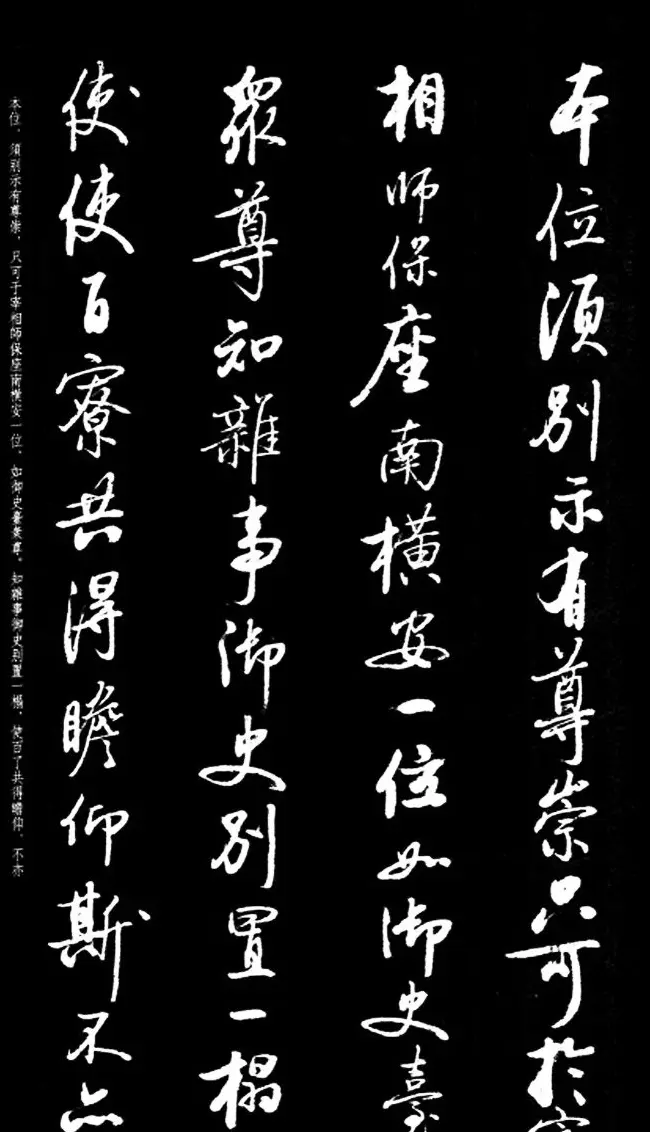 本位須別示有尊崇只可於
相師保座南橫安一位如御史臺
眾尊知雜事御史別置一榻
使使百寮共得瞻仰斯不亦
本位，須别示有尊崇，只可于宰相師保座南横安一位，如御史臺衆尊，知雜事御史别置一榻，使百了共得瞻仰，不亦